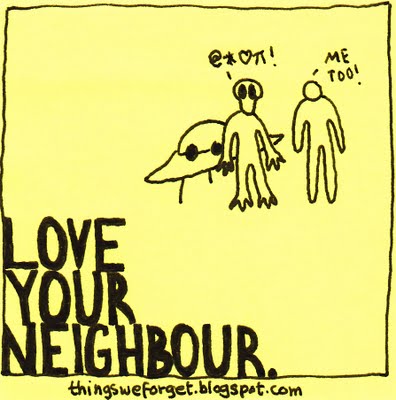 @*♡π!
ME
TOO!
LOVE
YOUR
NEIGHBOUR.
thingsweforget.blogspot.com